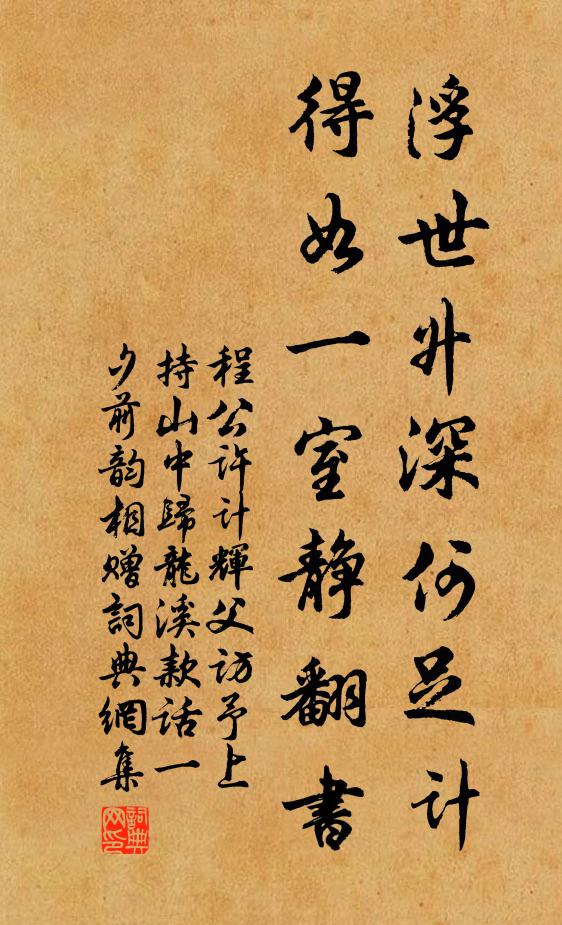 浮世升深何足计
得如一室静翻书
程公许计輝父访予上
持山中歸龍溪款话一
夕前韵相赠詞典網集
詞典网印